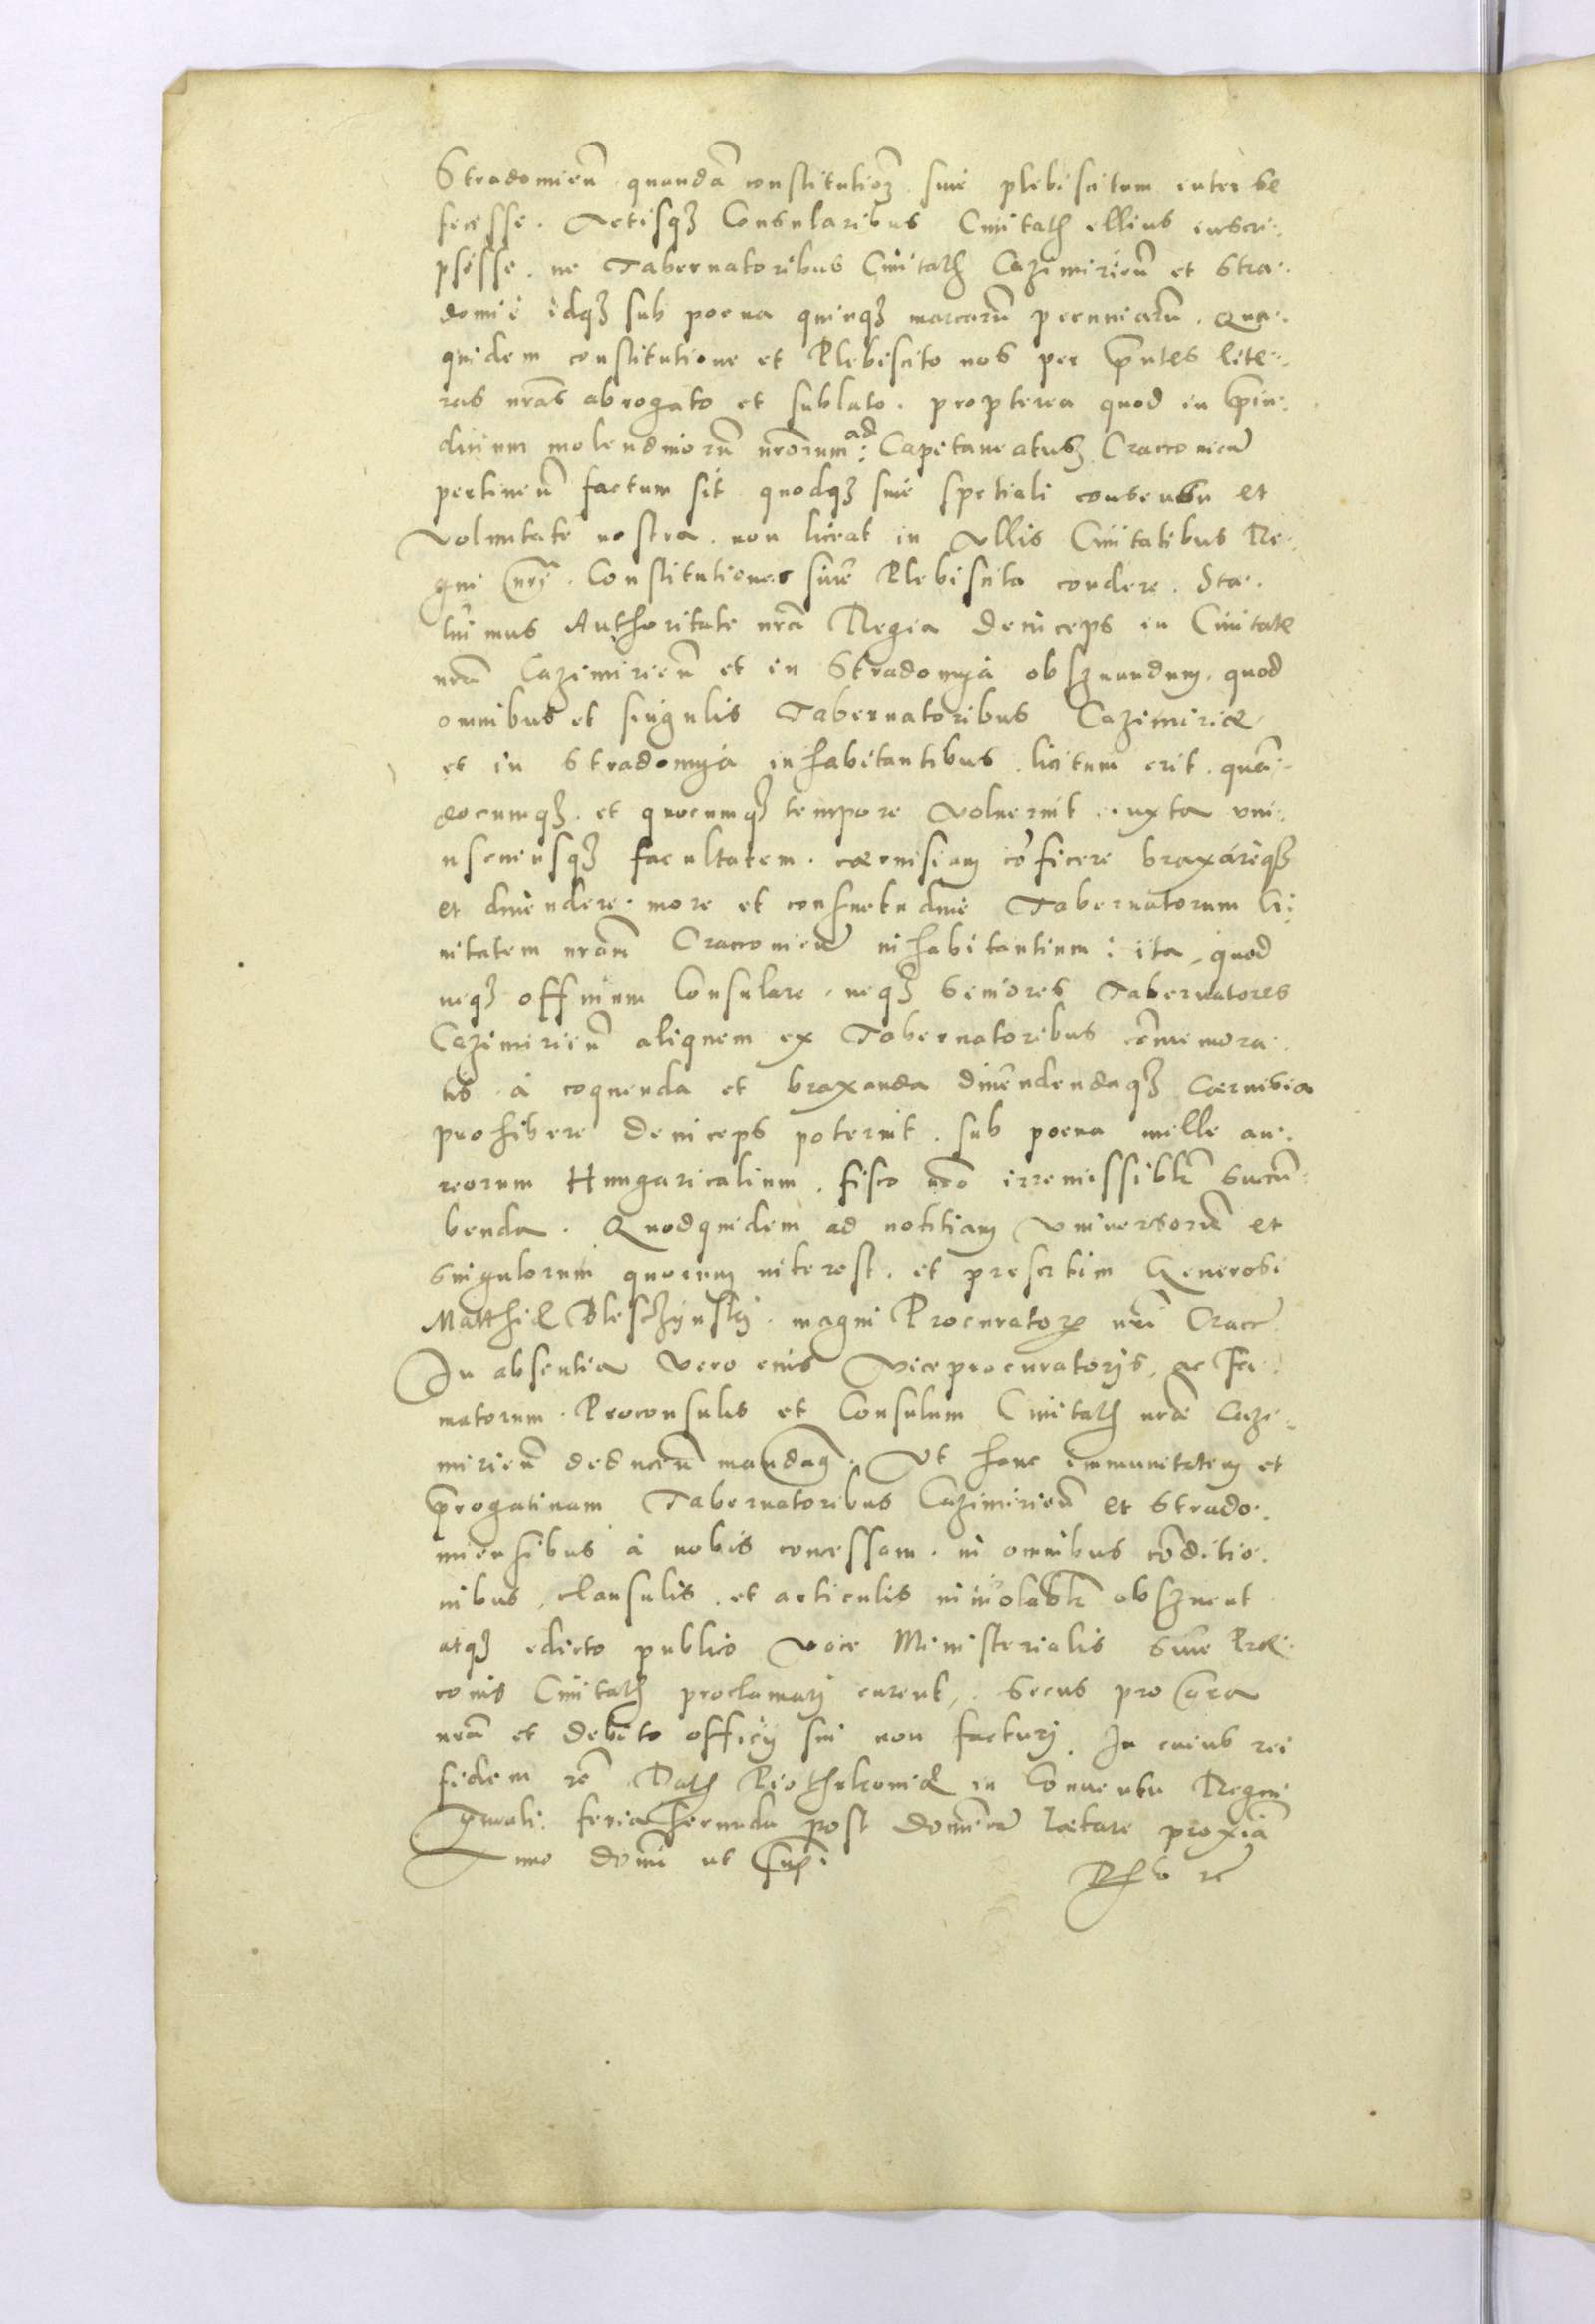 Stradomien̄ quandā constitutioꝫ siue plebiscitum inter se
fecisse. Actisqꝫ Consularibus Ciuitatis illius inscri:
psisse. ne Tabernatoribus Ciuitatis Cazimirien̄ et Stra:
domie idqꝫ sub poena quinqꝫ marcarū pecuniarū. Qua:
quidem constitutione et Plebiscito nos per p̄ntes lite:
ras nr̄as abrogato et sublato. propterea quod in p̄iu:
dicium molendinorū nr̄orum ad Capitaneatuꝫ Cracouien̄
pertinen̄ factum sit quodqꝫ sine spetiali consensu et
voluntate nostra. non liceat in vllis Ciuitatibus Re:
gni nr̄i. Constitutiones siue Plebiscita condere. Sta:
tuimus Authoritate nr̄a Regia deinceps in Ciuitate
nr̄a Cazimirien̄ et in Stradomya obseruandum. quod
omnibus et singulis Tabernatoribus Cazimiriae
et in Stradomya inhabitantibus. licitum erit. quā:
documqꝫ. et quocumqꝫ tempore voluerint iuxta vni:
uscuiusqꝫ facultatem. coeruisiam cōficere braxareqꝫ
et diuendere. more et consuetudine Tabernatorum Ci:
uitatem nr̄am Cracouien̄ inhabitantium: ita, quod
neqꝫ officium Consulare. neqꝫ Seniores Tabernatores
Cazimirien̄ aliquem ex Tabernatoribus cōmemora:
tis. à coquenda et braxanda diuendendaqꝫ coeruisia
prohibere deinceps poterint. sub poena mille au:
reorum Hungaricalium. fisco nr̄o irremissibil̄r succū:
benda. Quodquidem ad notitiam vniuersorū et
singulorum quorum interest. et presertim Generosi
Matthiae Bleschynsky. magni Procuratoris nr̄i Cracc̄
In absentia vero eius viceprocuratoris, ac Fa:
matorum. Proconsulis et Consulum Ciuitatis nr̄ae Cazi:
mirien̄ deducen̄ mandam̄. Vt hanc immunitatem et
p̄rogatiuam Tabernatoribus Cazimirien̄ et Strado:
miensibus à nobis concessam. in omnibus cōditio:
nibus, clausulis. et articulis inuiolabl̄r obseruent
atqꝫ edicto publico voce Ministerialis siue Prae:
conis Ciuitatis proclamari curent,. Secus pro gr̄a
nr̄a et debito officij sui non facturi. In cuius rei
fidem rē Datis Piothrkouiae in Conuentu Regni
gn̄ali: feria secunda post Domīcā Laetare proxīā
Anno Domī ut supᷓ.